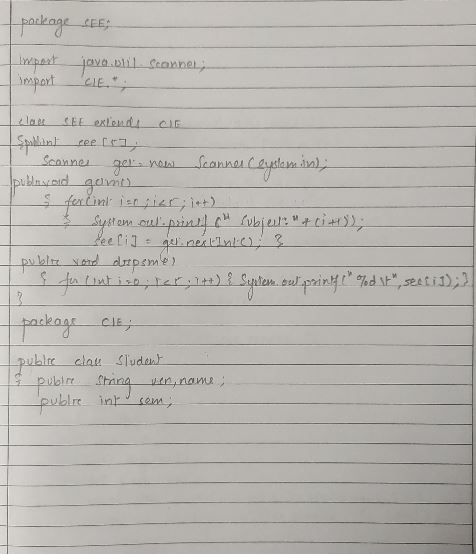 package SEE;
import java.util.Scanner;
import CIE.*;
class SEE extends CIE
{ public int see[5];
Scanner get = new Scanner(system.in);
public void getm()
{ for(int i=0; i<5; i++)
{ System.out.printf(" Subject: " + (i+1));
see[i] = get.nextInt(); }
public void dispsme()
{ for (int i=0; i<5; i++) { System.out.printf("%d \t", see[i]); }
}
package CIE;
public class Student
{ public String usn, name;
public int sem;